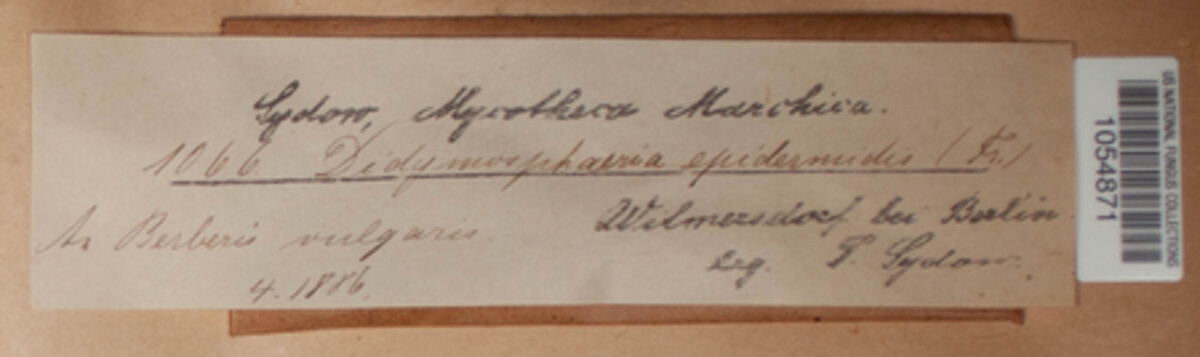 Sydow, Mycotheca Marchica.
1066 Didymosphaeria epidermidis (Fr.)
An Berberis vulgaris.
Wilmersdorf bei Berlin.
4.1886.
Leg. P. Sydow.
US NATIONAL FUNGUS COLLECTIONS
1054871